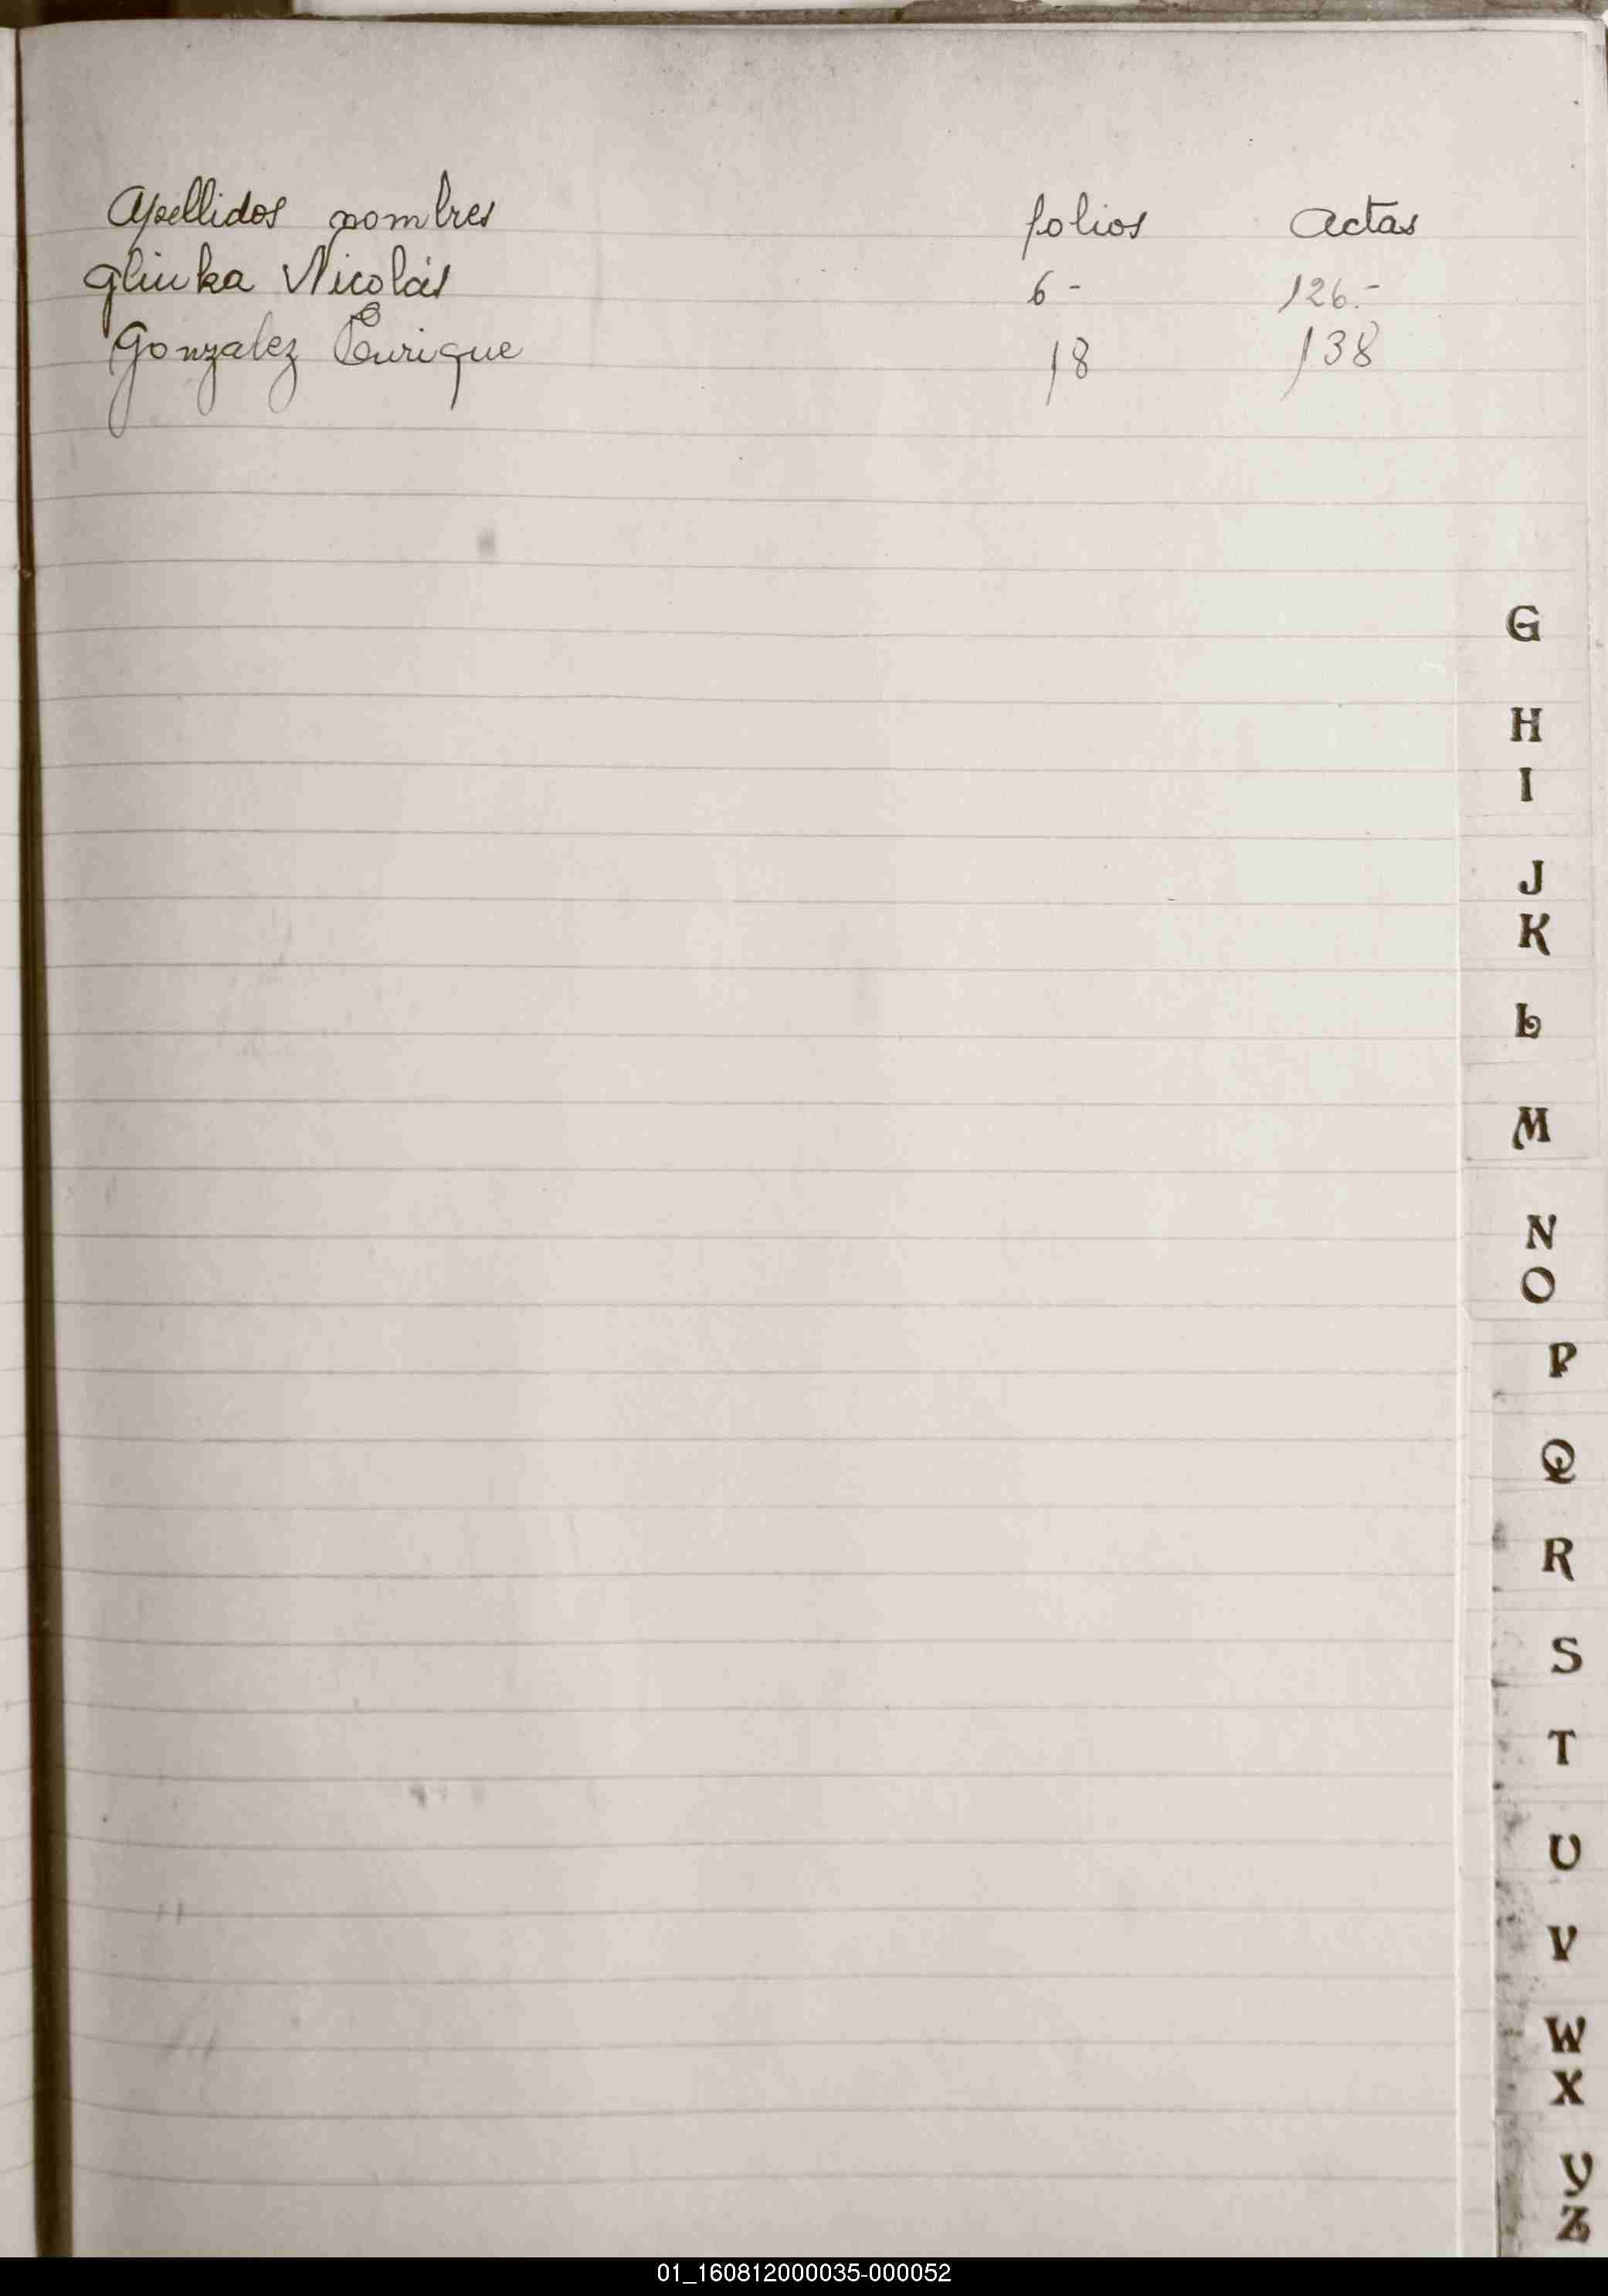 Apellidos nombres folios Actas
Glinka Nicolás 6- 126.-
Gonzalez Enrique 18 138
G
H
I
J
K
L
M
N
O
P
Q
R
S
T
U
V
W
X
Y
Z
01_160812000035-000052